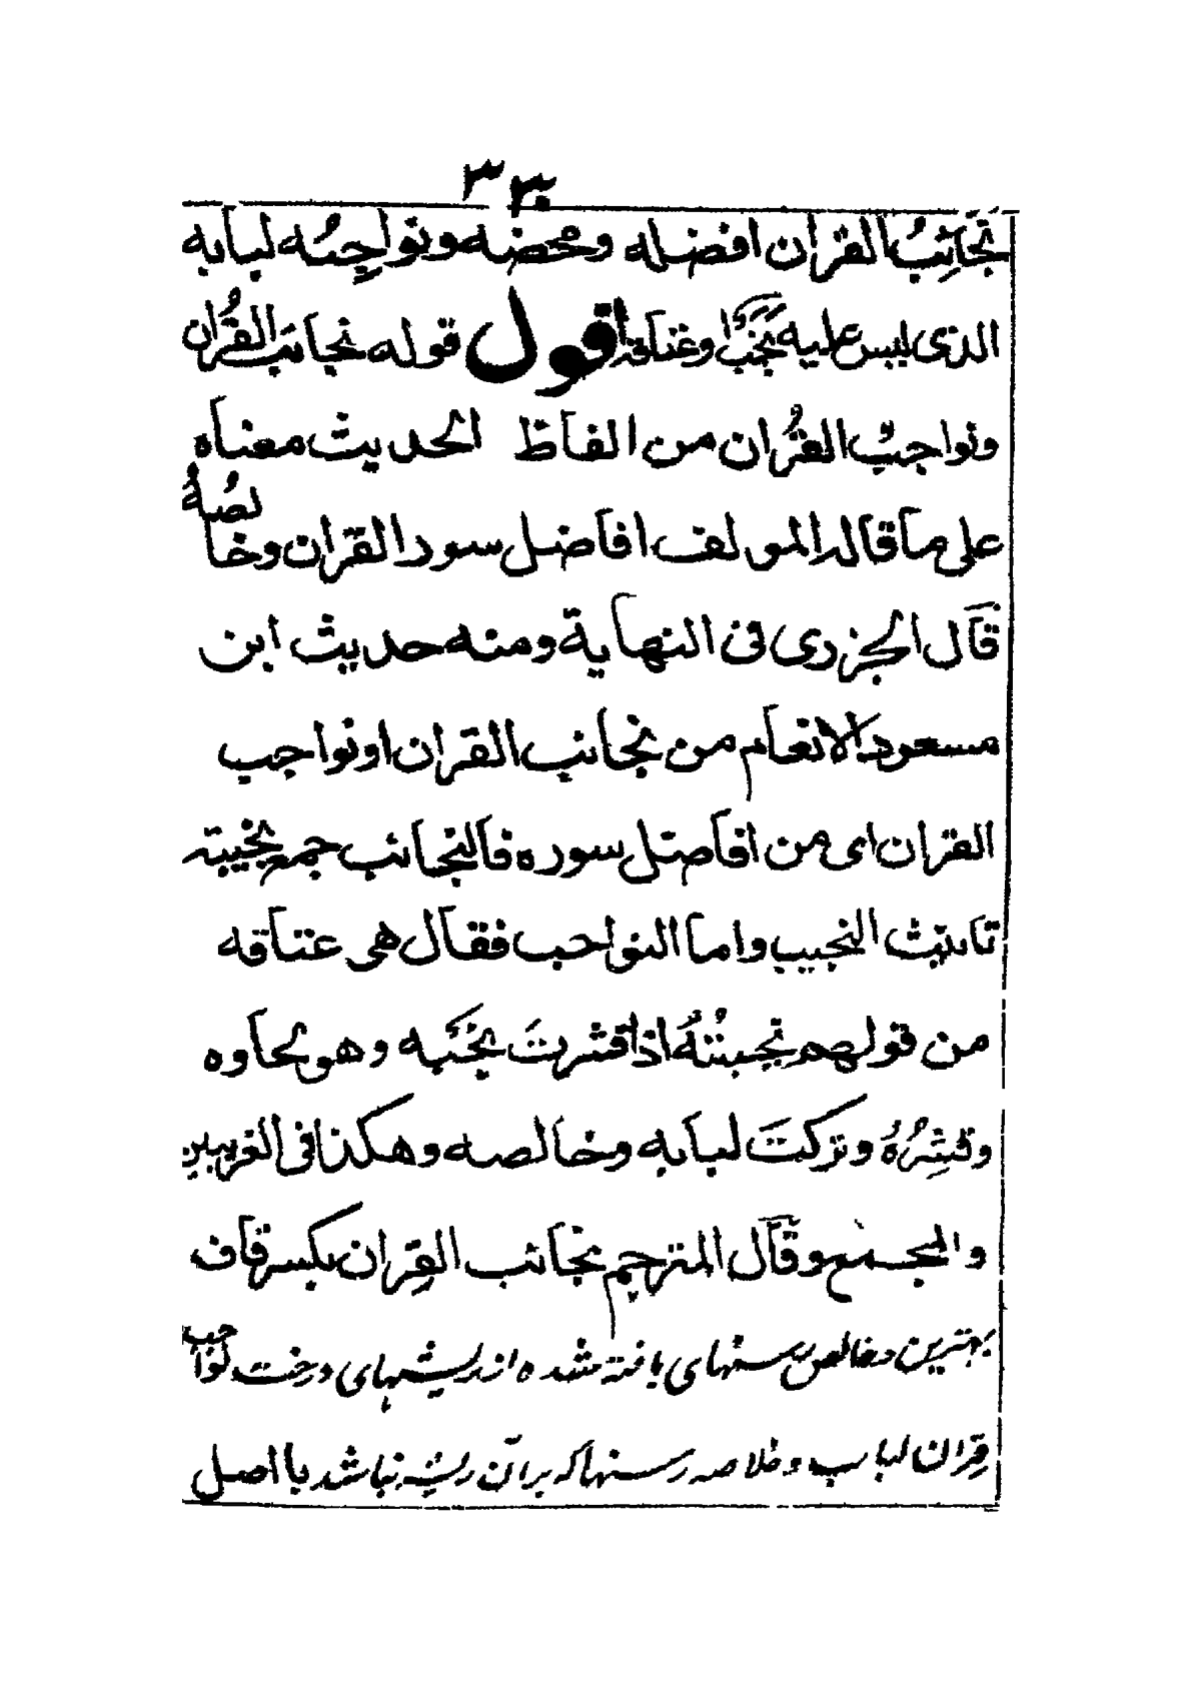 ٣٣
نَجَائِبُ القران افضله ومحضه ونواجبُه لبابه
الذى ليس عليه نَجَبٌ وعتاقه اقول قوله نجائب القُران
ونواجبُ القُران من الفاظ الحديث معناه
على ما قاله المولف افاضل سور القران وخالصُهُ
قال الجزرى فى النهاية ومنه حديث ابن
مسعود الانعام من نجائب القران او نواجب
القران اى من افاضل سوره فالنجائب جمع نجيبة
تانيث النجيب واما النواجب فقال هى عتاقه
من قولهم نجبتُهُ اذا قشرتَ نَجَبَه وهو لحاوه
وقِشْرُهُ وتركتَ لبابه وخالصه وهكذا فى الغريبين
والمجمع وقال المترجم نجائب القِران بكسر قاف
بهترين وخالص رسنهاى بافته شده از ريشهاى درخت نواجب
قِران لباب وخلاصه رسنها كه بران ريشه نباشد با اصل